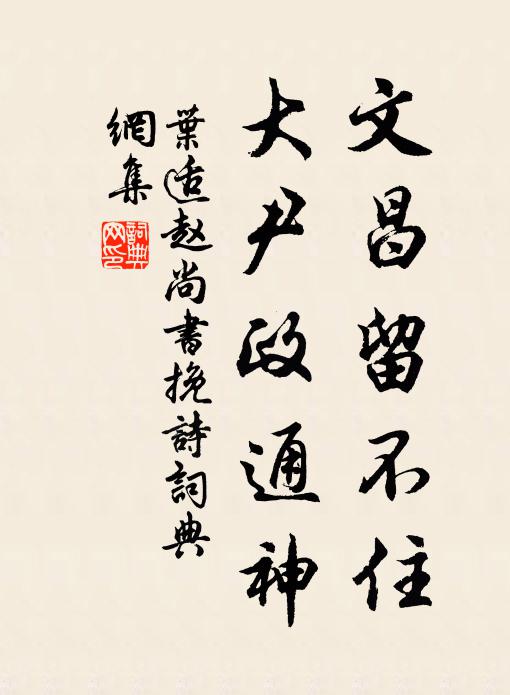 文昌留不住
大尹政通神
葉适赵尚書挽詩詞典
網集
詞典
网印